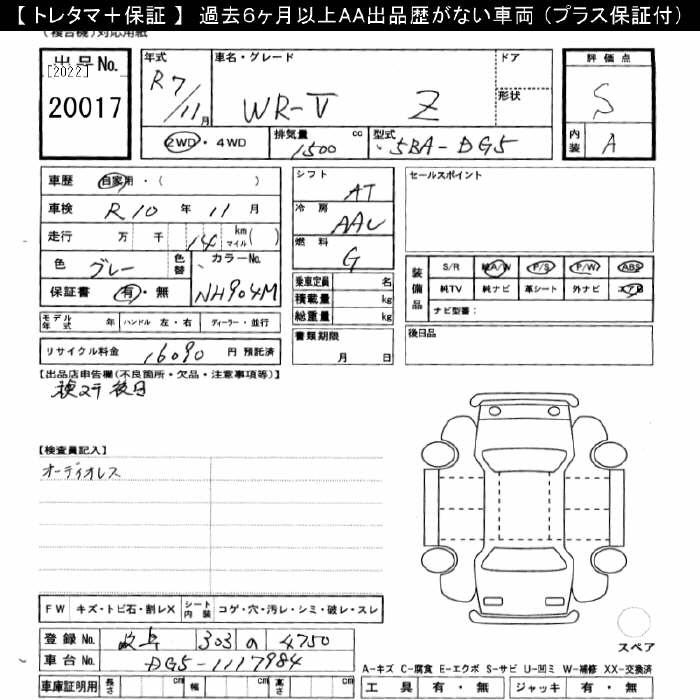 【 トレタマ＋保証 】 過去6ヶ月以上AA出品歴がない車両 (プラス保証付)
出品No. [2022] 20017
年式 R7/11月
車名・グレード WR-V Z
ドア
形状
評価点 S
内装 A
2WD・4WD
排気量 1500 cc
型式 5BA-DG5
車歴 自家用・( )
車検 R10年 11月
走行 万 千 14 km マイル( )
色 グレー 色替 カラーNo. NH904M
保証書 有・無
モデル年式 年 ハンドル 左・右 ディーラー・並行
リサイクル料金 16090 円 預託済
シフト AT
冷房 AAC
燃料 G
乗車定員 名
積載量 kg
総重量 kg
書類期限 月 日
セールスポイント
装備品 S/R 純A/W P/S P/W ABS
純TV 純ナビ 革シート 外ナビ エアB
ナビ型番:
後日品
【出品店申告欄(不良箇所・欠品・注意事項等)】
検ステ後日
【検査員記入】
オーディオレス
FW キズ・トビ石・割レX シート内装 コゲ・穴・汚レ・シミ・破レ・スレ
登録No. 岐阜 303 の 4750
車台No. DG5-1117984
車庫証明用 長さ cm 幅 cm 高さ cm
スペア
A-キズ C-腐食 E-エクボ S-サビ U-凹ミ W-補修 XX-交換済
工具 有・無 ジャッキ 有・無